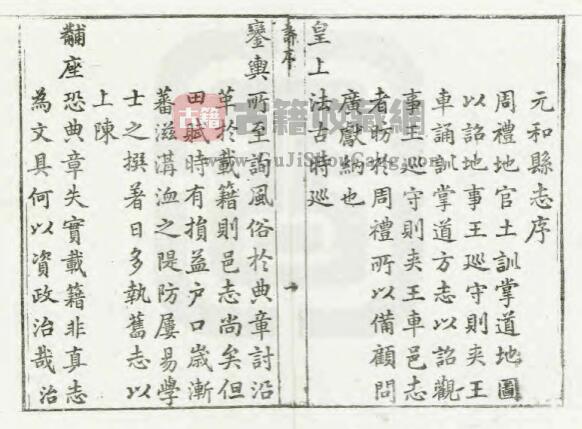 元和縣志序
周禮地官土訓掌道地圖
以詔地事王巡守則夾王
車誦訓掌道方志以詔觀
事王巡守則夾王車邑志
者昉於周禮所以備顧問
廣獻納也
皇上法古時巡
序
鑾輿所至詢風俗於典章討沿
革於載籍則邑志尚矣但
田賦時有損益户口歲漸
蕃滋溝洫之隄防屢易學
士之撰著日多執舊志以
上陳
黼座恐典章失實載籍非真志
為文具何以資政治哉治
古籍
古籍收藏网
www.GuJiShouCang.com